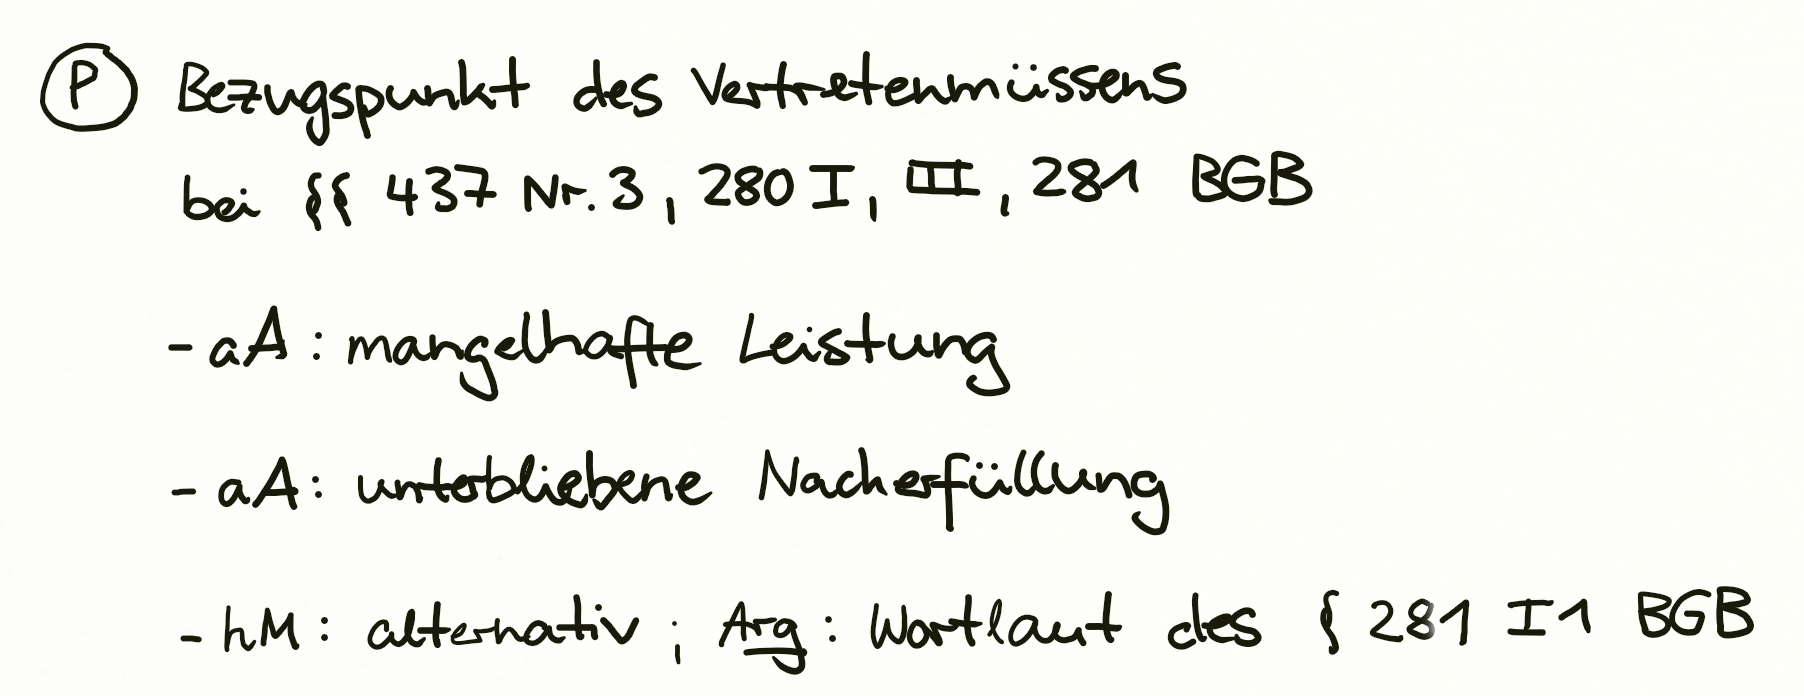 P Bezugspunkt des Vertretenmüssens
bei §§ 437 Nr. 3, 280 I, III, 281 BGB
- aA: mangelhafte Leistung
- aA: unterbliebene Nacherfüllung
- hM: alternativ; Arg: Wortlaut des § 281 I 1 BGB